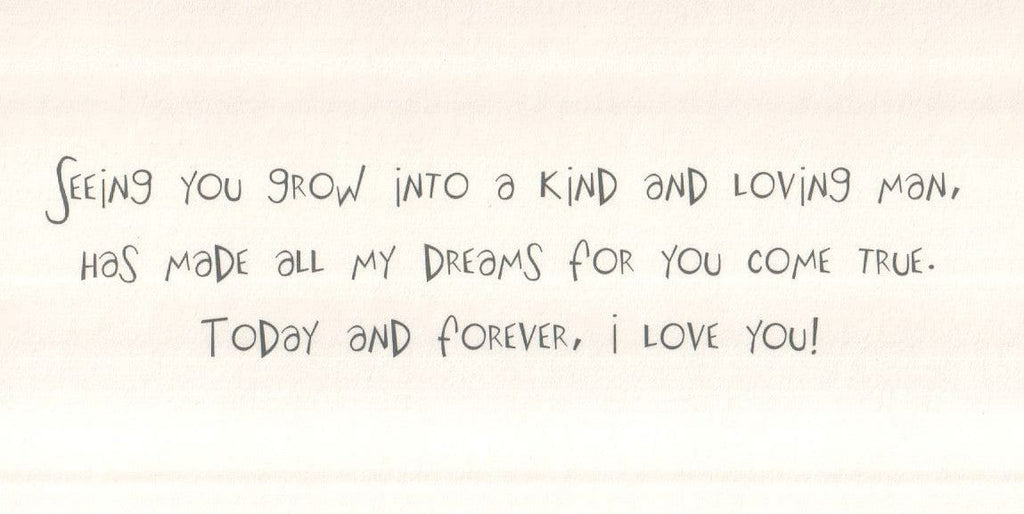 Seeing you grow into a kind and loving man,
has made all my dreams for you come true.
Today and forever, i love you!